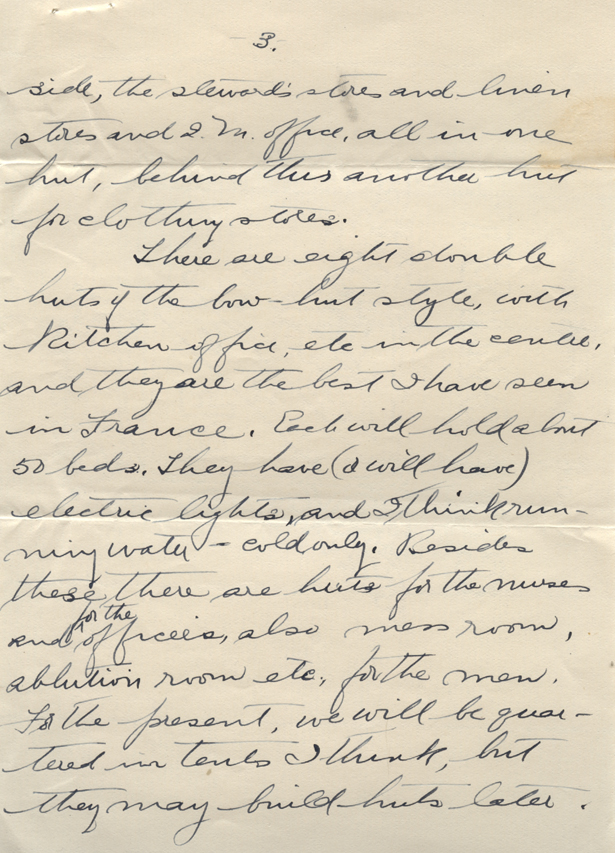 3.
side, the steward's stores and linen
stores and Q.M. office, all in one
hut, behind this another hut
for clothing stores.
There are eight double
huts of the bow-hut style, with
Kitchen office, etc in the centre,
and they are the best I have seen
in France. Each will hold about
50 beds. They have (or will have)
electric lights, and I think run-
ning water - cold only. Besides
these there are huts for the nurses
for the
and officers, also mess room,
ablution room etc., for the men.
For the present, we will be quar-
tered in tents I think, but
they may build huts later.